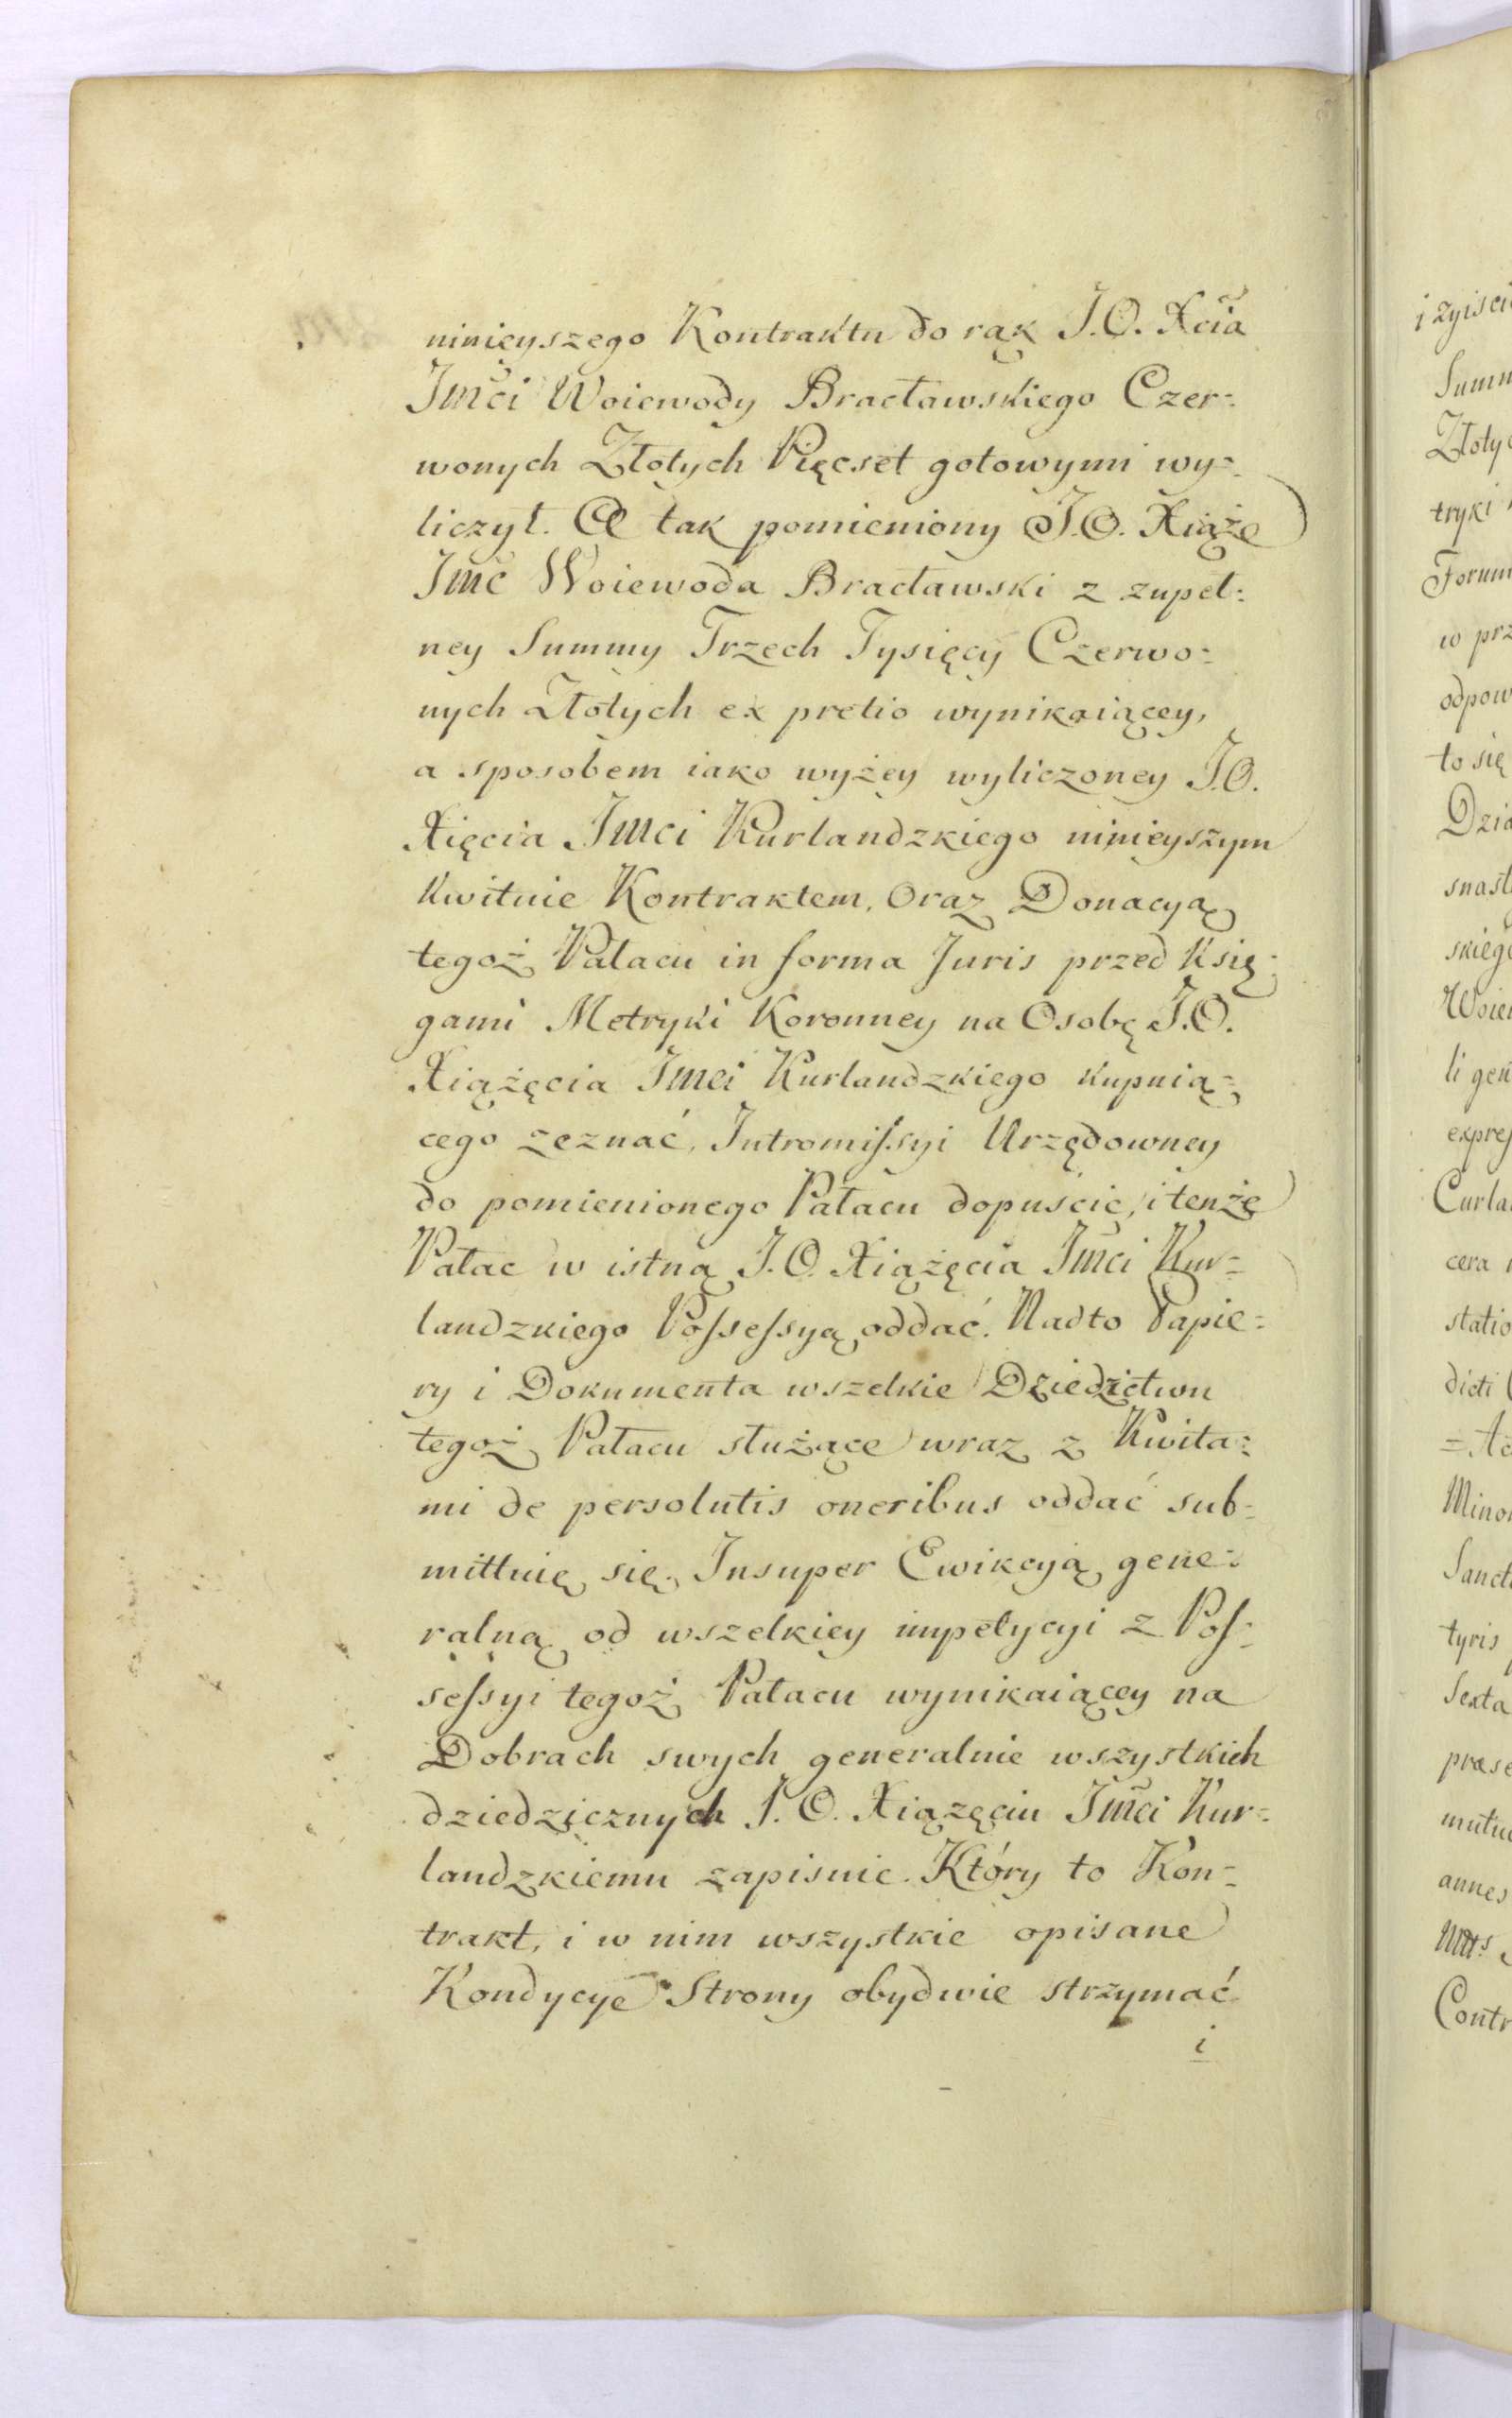 ninieyszego Kontraktu do rąk J.O. Xcia
Jmći Woiewody Bracławskiego Czer=
wonych Złotych Pięcset gotowymi wy=
liczył. A tak pomieniony J.O. Xiąże
Jmć Woiewoda Bracławski z zupeł=
ney Summy Trzech Tysięcy Czerwo=
nych Złotych ex pretio wynikaiącey,
a sposobem iako wyżey wyliczoney J.O.
Xięcia Jmci Kurlandzkiego ninieyszym
kwituie Kontraktem, Oraz Donacyą
tegoż Pałacu in forma Juris przed Księ=
gami Metryki Koronney na Osobę J.O.
Xiążęcia Jmci Kurlandzkiego kupuią=
cego zeznać, Intromiſsyi Urzędowney
do pomienionego Pałacu dopuścić, i tenże
Pałac w istną J.O. Xiążęcia Jmći Kur=
landzkiego Poſseſsyą oddać. Nadto Papie=
ry i Dokumenta wszelkie Dziedzictwu
tegoż Pałacu służące wraz z Kwita=
mi de persolutis oneribus oddać sub=
mittuię się. Insuper Ewikcyą gene=
ralną od wszelkiey impetycyi z Poſ=
seſsyi tegoż Pałacu wynikaiącey na
Dobrach swych generalnie wszystkich
dziedzicznych J.O. Xiązęciu Jmći Kur=
landzkiemu zapisuie. Który to Kon=
trakt, i w nim wszystkie opisane
Kondycye Strony obydwie strzymać
i
i zyisci
Summ
Złoty
tryki
Forum
w prz
odpow
to się
Dzia
snast
skieg
Woie
li gen
expreſ
Curla
cera
statio
dicti
= Ac
Mino
Sanct
tyris
Sexta
præse
mutu
annes
Contr